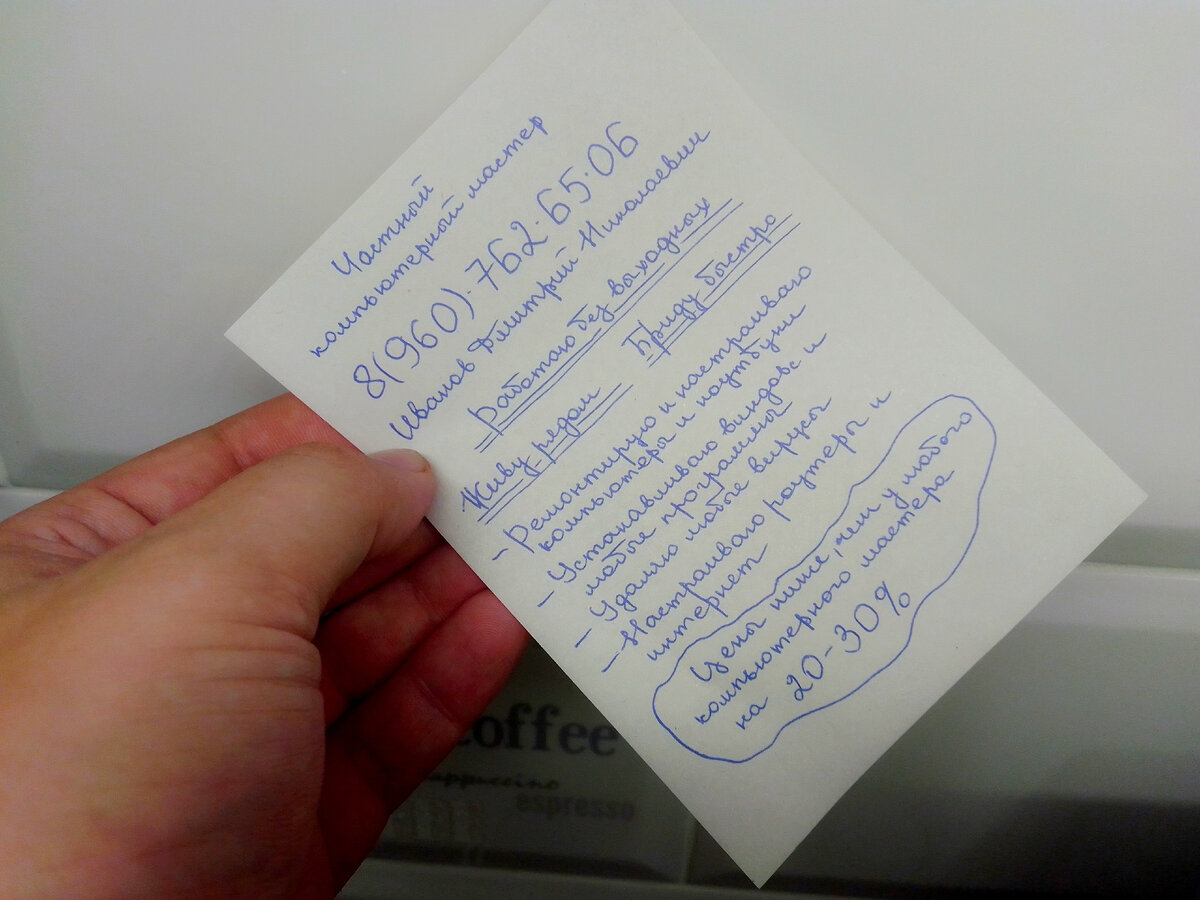 Частный
компьютерный мастер
8(960)·762·65·06
Иванов Дмитрий Николаевич
Работаю без выходных
Живу рядом Приду быстро
- Ремонтирую и настраиваю
компьютеры и ноутбуки
- Устанавливаю виндовс и
любые программы
- Удаляю любые вирусы
- Настраиваю роутеры и
интернет
Цены ниже, чем у любого
компьютерного мастера
на 20-30%
coffee
cappuccino
espresso